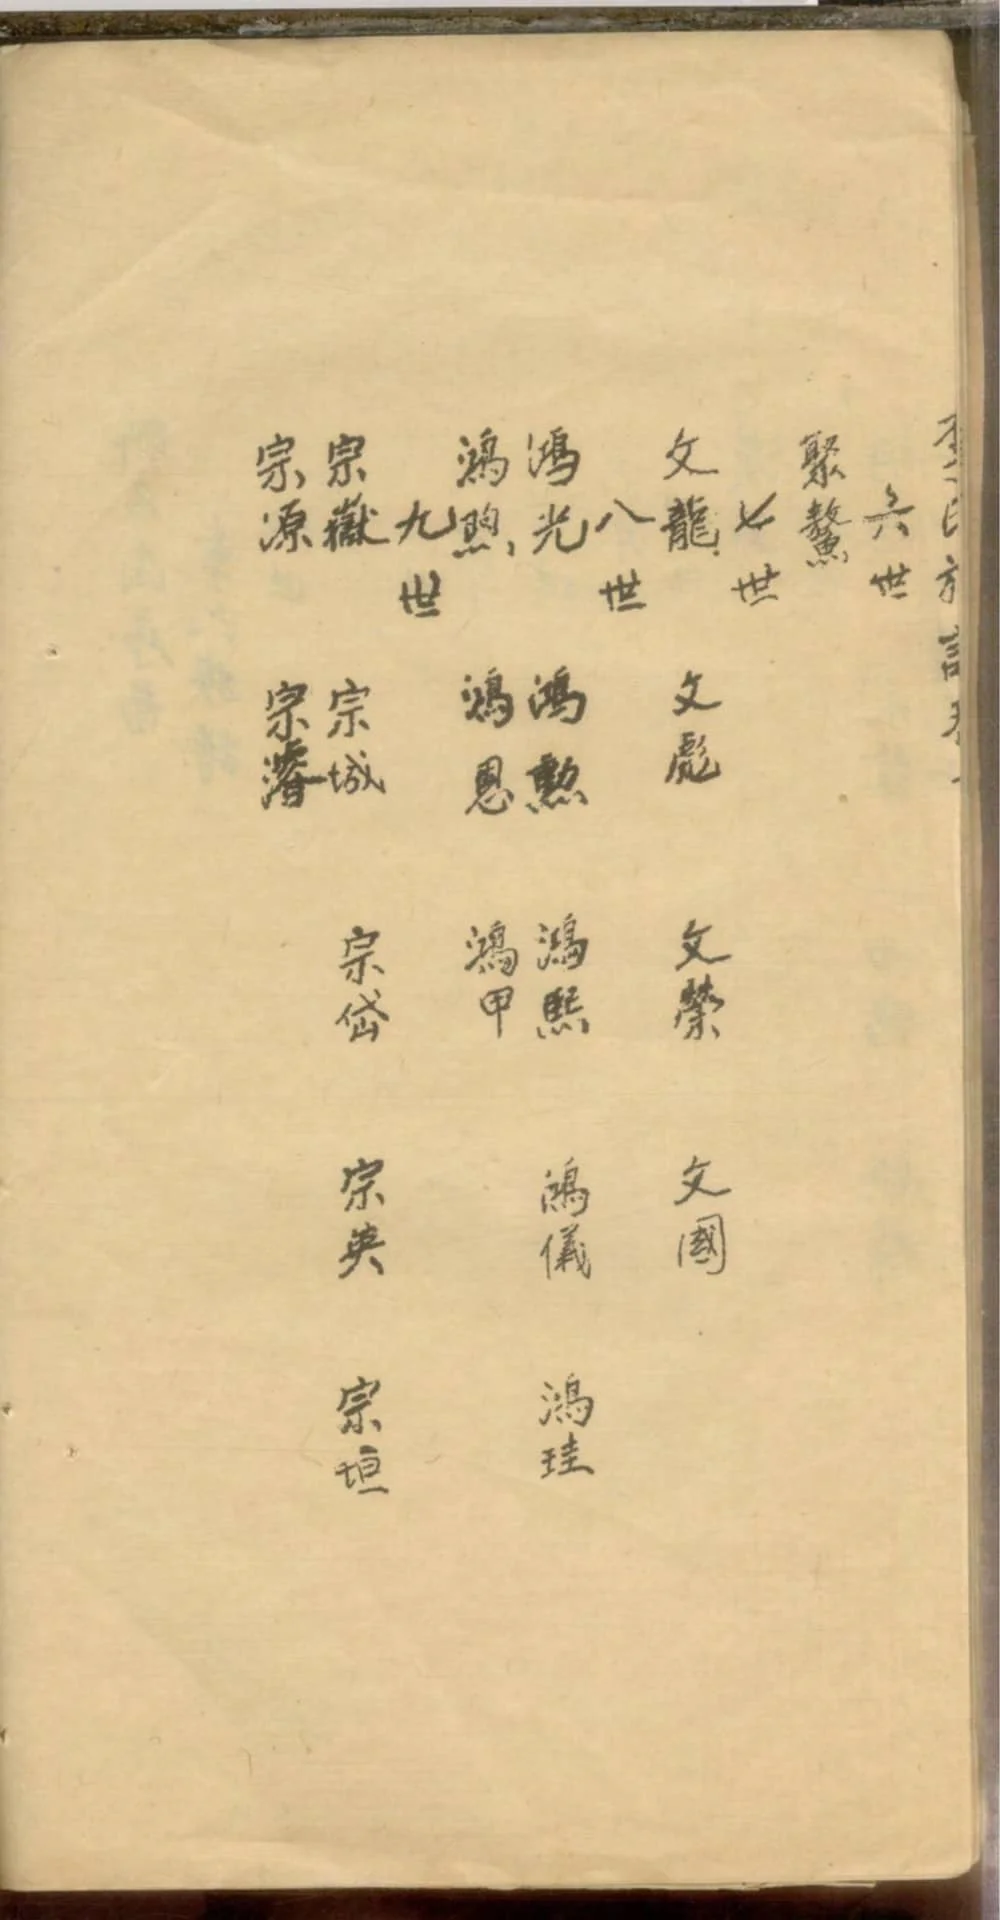 六世
聚鰲
七世
文龍 文彪 文榮 文國
八世
鴻光 鴻勲 鴻熙 鴻儀 鴻珪
鴻煦 鴻恩 鴻甲
九世
宗嶽 宗城 宗岱 宗英 宗垣
宗源 宗濬